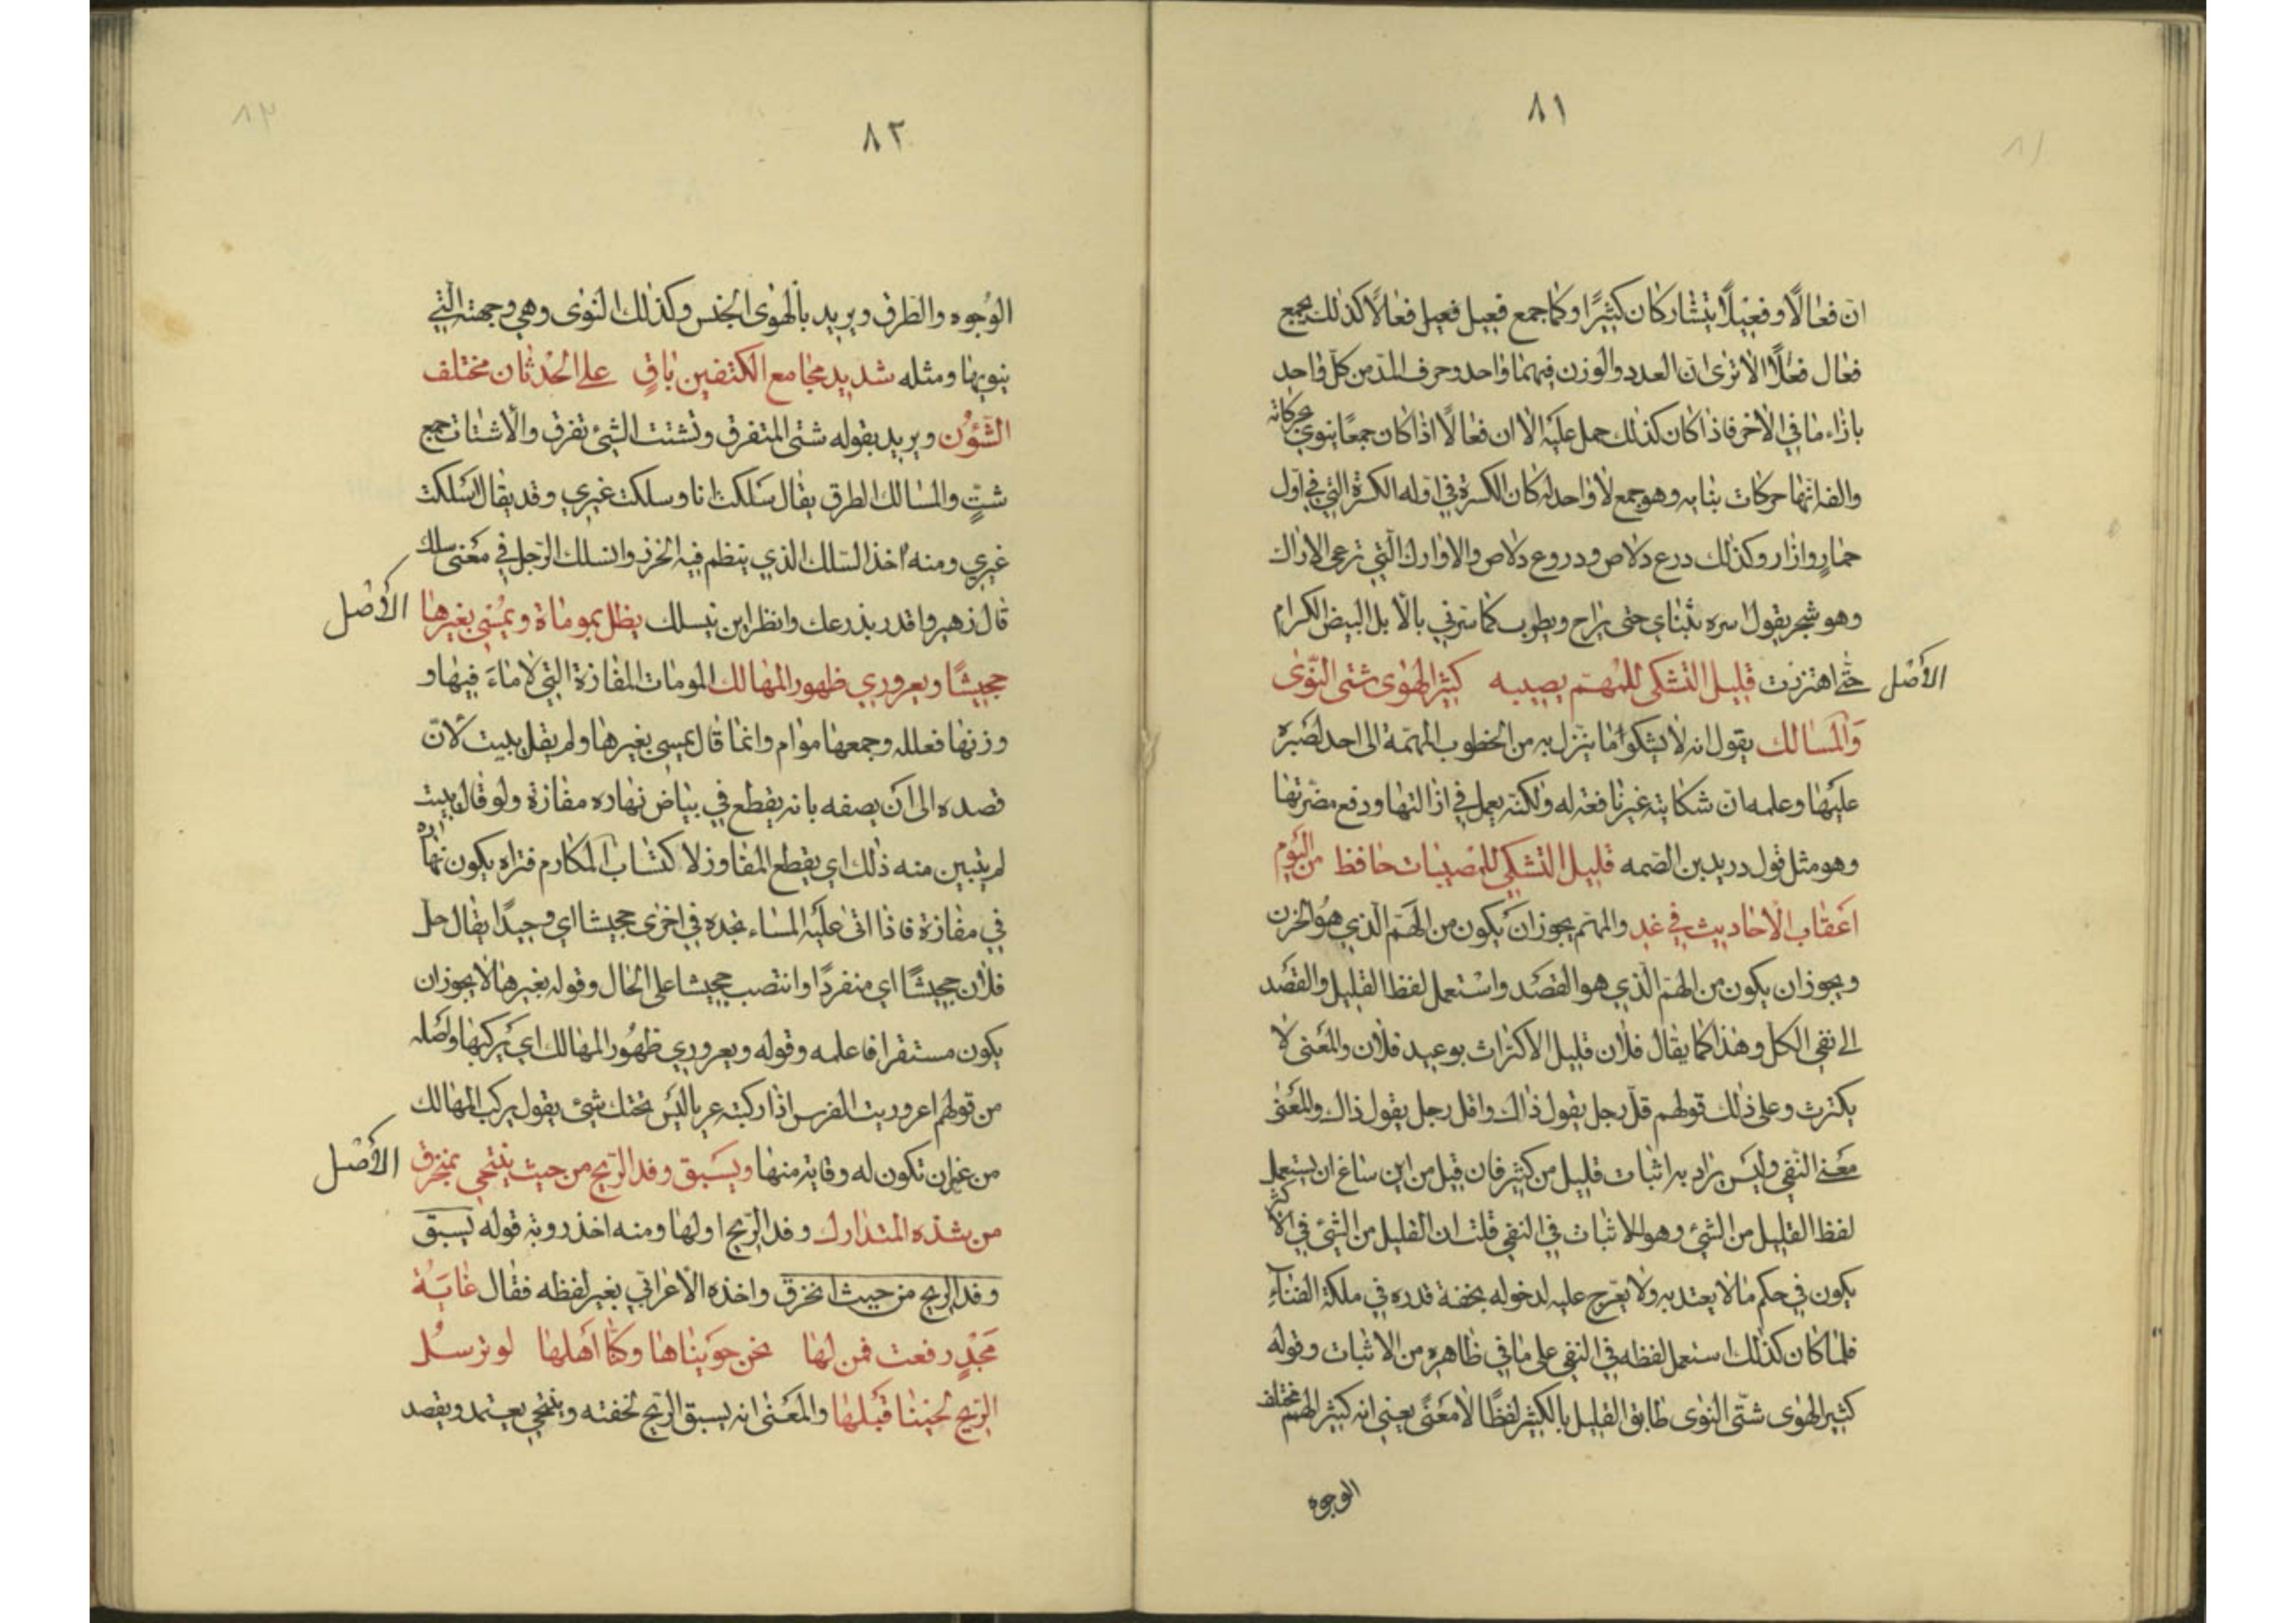 ٨١
انّ فعالًا وفعيلًا يتشاركان كثيرًا وكما جمع فعيل فعيل فعالًا كذلك يجمع
فعال فعلًا الا ترى ان العدد والوزن فيهما واحد وحرف المدّ من كلّ واحد
بازاء ما في الاخر فاذا كان كذلك حمل عليه الا ان فعالًا اذا كان جمعًا ينوي بحركاته
والفه انها حركات بنابه وهو جمع لا واحد له كان الكسرة في اوله الكسرة التي في اول
حمار وازار وكذلك درع دلاص ودروع دلاص والاوارك الّتي ترعى الاراك
وهو شجر يقول اسره بثنايي حتى يراح ويطرب كما سرني بالابل البيض الكرام
الأصل
حتّى اهتززت قليل التشكى للمهمّ يصيبه كثير الهوى شتى النّوى
والمسالك يقول انه لا يشكوا ما ينزل به من الخطوب المهمّة الى احد لصبره
عليها وعلمه ان شكايته غير نافعة له ولكنّه يعمل في ازالتها ودفع مضرتها
وهو مثل قول دريد بن الصّمه قليل التشكي للمصيبات حافظ من اليوم
اعقاب الأحاديث في غد والمهّم يجوز ان يكون من الهَمّ الّذي هو الحزن
ويجوز ان يكون من الهمّ الّذي هو القصَد واستعمل لفظ القليل والقصد
الى نفى الكل وهذا كما يقال فلان قليل الاكتراث بوعيد فلان والمعنى لا
يكترث وعلى ذلك قولهم قلّ رجل يقول ذاك واقل رجل يقول ذاك والمعنى
معنى النفي وليس يراد به اثبات قليل من كثير فان قيل من اين ساغ ان يستعمل
لفظ القليل من الشئ وهو للاثبات في النفي قلت ان القليل من الشئ في الأكثر
يكون في حكم ما لا يعتد به ولا يعرّج عليه لدخوله بخفة قدره في ملكة الفناءِ
فلما كان كذلك استعمل لفظه في النفى على ما في ظاهره من الاثبات وقوله
كثير الهوى شتّى النوى طابق القليل بالكثير لفظًا لا معنًى يعني انه كثير الهمم مختلف
الوجوه
٨٢
الوُجوه والطرف ويريد بالهوى الجنس وكذلك النوى وهي وجهته الّتي
ينويها ومثله شديد مجامع الكتفين باقٍ على الحدثان مختلف
الشّؤن ويريد بقوله شتى المتفرق وتشتت الشئ تفرق والأشتات جمع
شتٍّ والمسالك الطرق يقال سَلكت انا وسلكت غيري وقد يقال اسلكت
غيري ومنه اخذ السّلك الذي ينظم فيه الخرز وانسلك الرّجل في معنى سلك
قال زهير واقدر بذرعك وانظر اين تنسلك يظل بموماة ويمُسي بغيرها
الأصل
جحيشًا ويعروري ظهور المهالك المومات المفازة التي لا ماءَ فيها و
وزنها فعلله وجمعها موام وانما قال يمسي بغيرها ولم يقل يبيت لانّ
قصده الى ان يصفه بانه يقطع في بياض نهاره مفازة ولو قال يبيت
لم يتبين منه ذلك اي يقطع المفاوز لاكتساب المكارم فتراه يكون نهاره
في مفازة فاذا اتى عليه المساء تجده في اخرى جحيشا اي وحيدًا يقال حلّ
فلان جحيشًا اي منفردًا وانتصب جحيشا على الحال وقوله بغيرها لا يجوز ان
يكون مستقرا فاعلمه وقوله ويعروري ظهُور المهالك اي يركبها واصله
من قولهم اعروريت الفرس اذا ركبته عريا ليس تحتك شئ يقول يركب المهالك
من غير ان تكون له وقاية منها ويسَبق وفد الرّيح من حيث ينتحي بمنخرق
الأصل
من شدّه المتدارك وفد الرّيح اولها ومنه اخذ روبة قوله يَسبق
وفد الريح من حيث انخرق واخذه الأعرابّي بغير لفظه فقال غايَة
مَجْدٍ رفعت فمن لها نحن حوَيناها وكنّا اَهلها لو ترسل
الرّيح لجئنا قَبلها والمَعنى انه يسبق الرّيح لخفته وينتحي يعتمد ويقصد